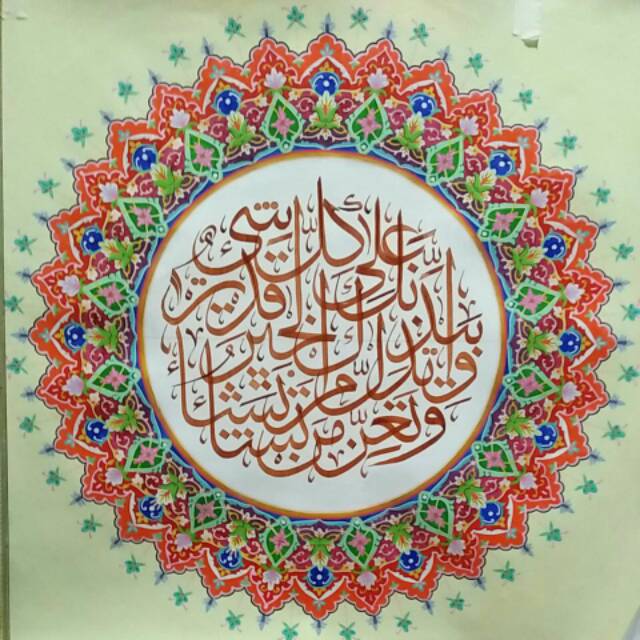 وتعز من تشاء
وتذل من تشاء
بيدك الخير
إنك على كل شيء قدير